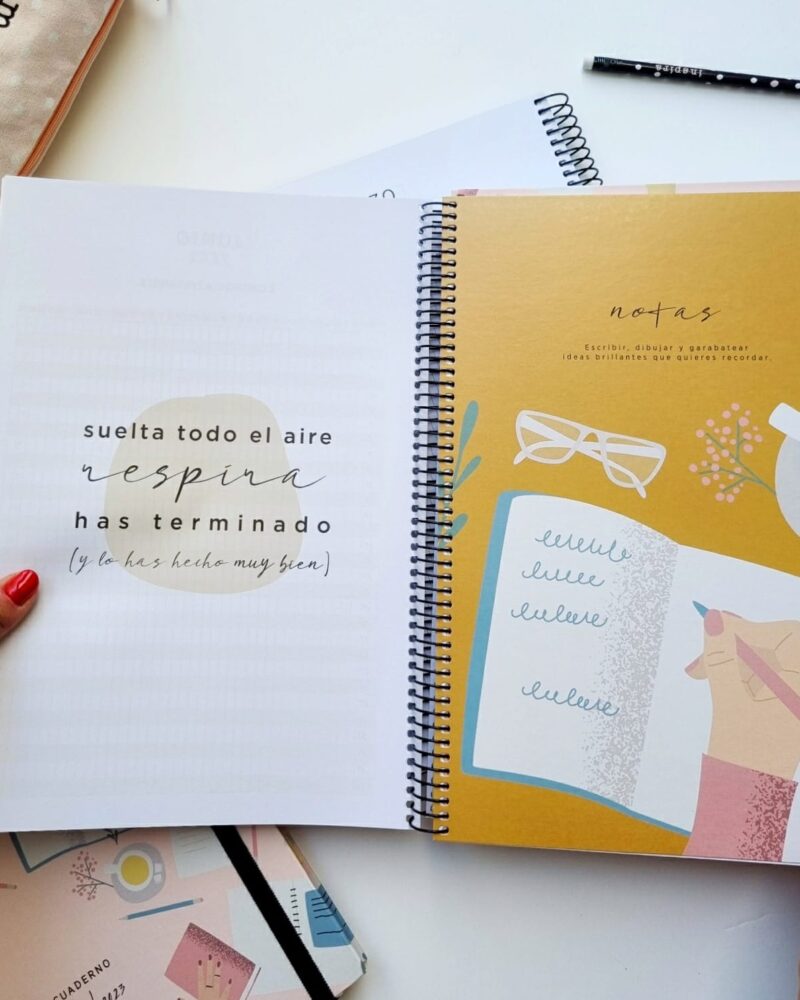 inspira
suelta todo el aire
respira
has terminado
(y lo has hecho muy bien)
notas
Escribir, dibujar y garabatear
ideas brillantes que quieres recordar.
CUADERNO
2023